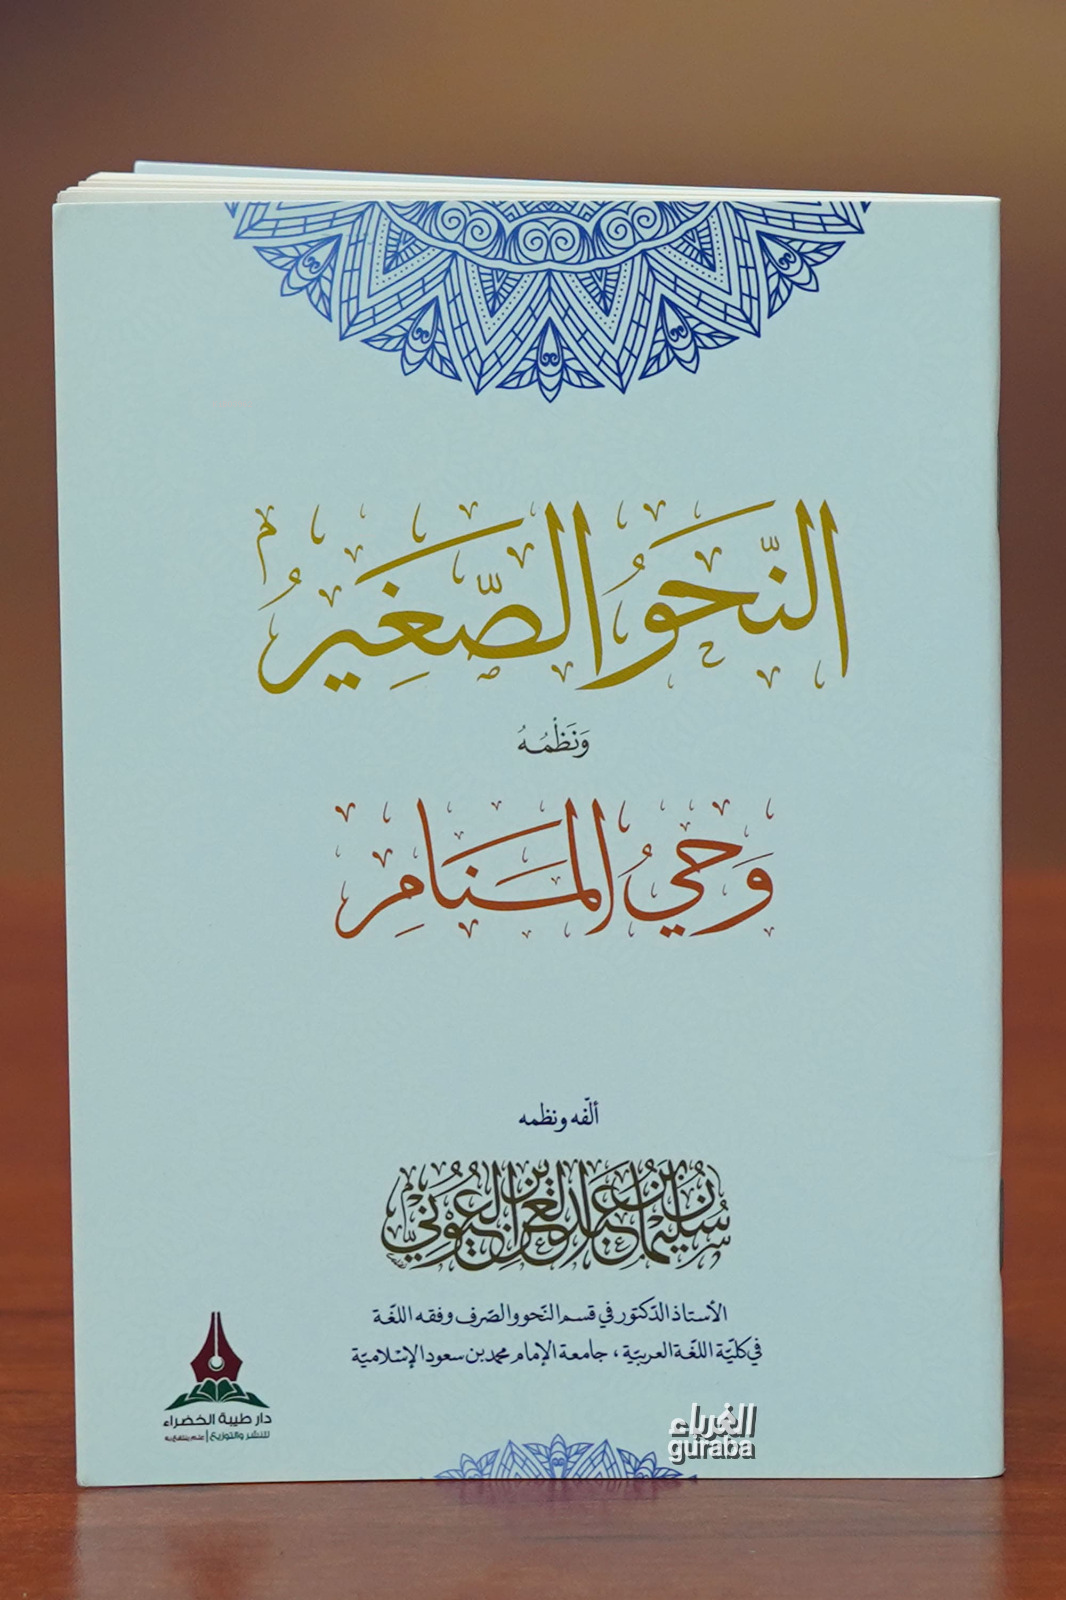 النَّحوُ الصَّغِيرُ
وَنَظْمُهُ
وَحيُ المَنَامِ
ألّفه ونظمه
سُليمان بن عبد العزيز العيوني
الأستاذ الدّكتور في قسم النّحو والصّرف وفقه اللغة
في كليّة اللغة العربية، جامعة الإمام محمد بن سعود الإسلامية
دار طيبة الخضراء
للنشر والتوزيع | علم ينتفع به
الغرباء
guraba